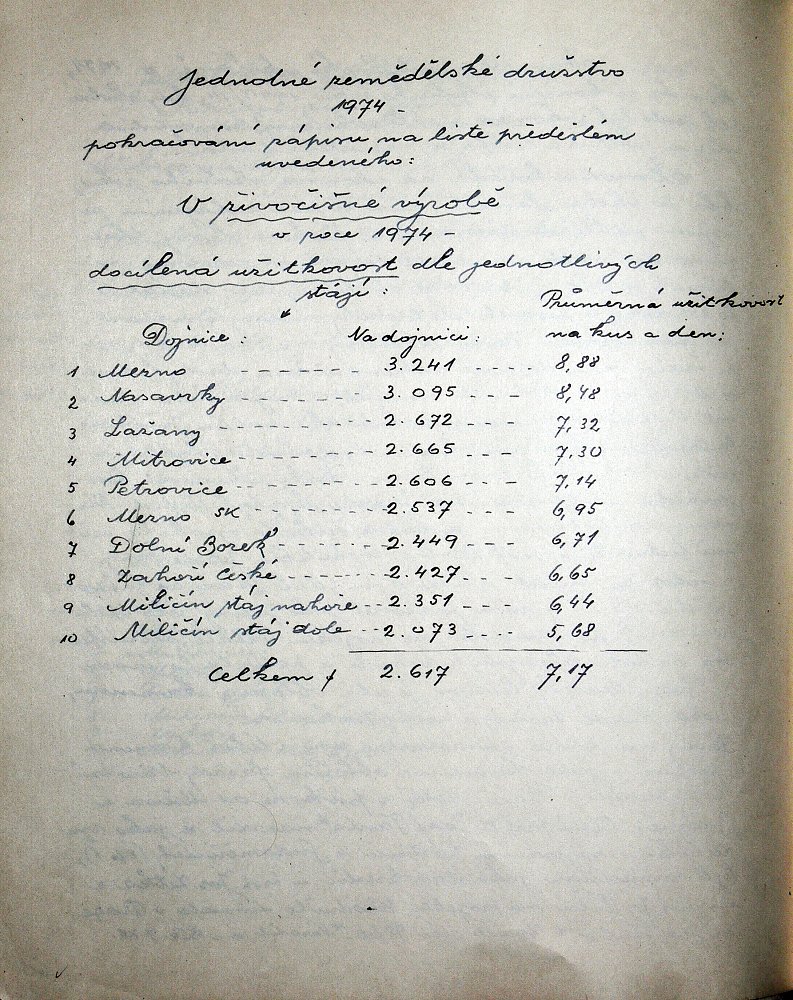 Jednotné zemědělské družstvo
1974 -
pokračování zápisu na listě předešlém
uvedeného:
V živočišné výrobě
v roce 1974 -
docílená užitkovost dle jednotlivých
stájí:
Průměrná užitkovost
Dojnice: Na dojnici: na kus a den:
1 Mezno - - - - - - - 3.241 - - - - 8,88
2 Nasavrky - - - - - - 3.095 - - - 8,48
3 Lažany - - - - - - - 2.672 - - - 7,32
4 Mitrovice - - - - - - 2.665 - - - 7,30
5 Petrovice - - - - - - 2.606 - - - 7,14
6 Mezno SK - - - - - 2.537 - - - 6,95
7 Dolní Borek - - - - - 2.449 - - - 6,71
8 Zahoří České - - - - - 2.427 - - - 6,65
9 Miličín stáj nahoře - - 2.351 - - - 6,44
10 Miličín stáj dole - - 2.073 - - - - 5,68
Celkem 2.617 7,17